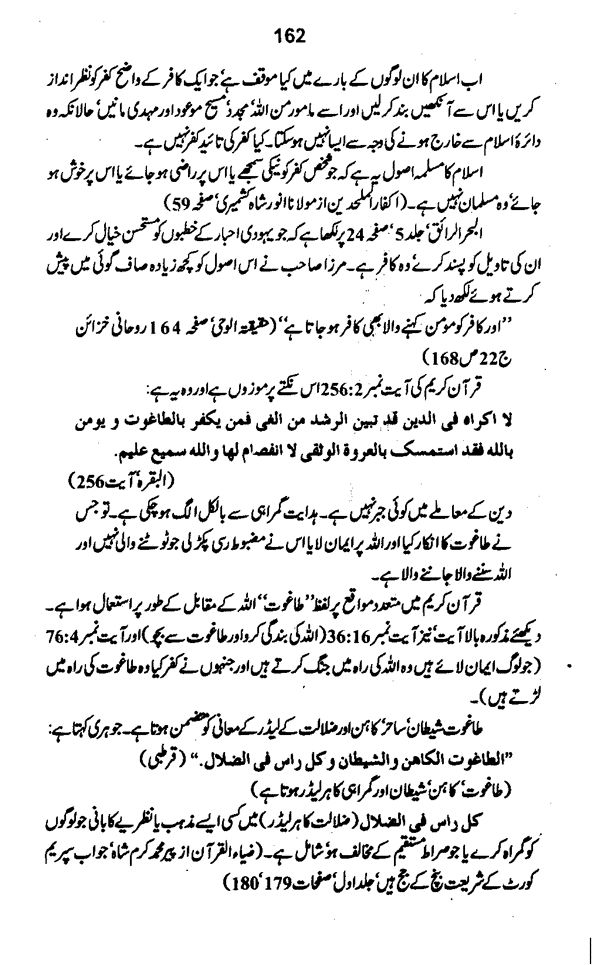 162
اب اسلام کا ان لوگوں کے بارے میں کیا موقف ہے، جو ایک کافر کے واضح کفر کو نظر انداز
کریں یا اس سے آنکھیں بند کر لیں اور اسے مامور من اللہ، مجدد، مسیح موعود اور مہدی مانیں، حالانکہ وہ
دائرۂ اسلام سے خارج ہونے کی وجہ سے ایسا نہیں ہو سکتا۔ کیا کفر کی تائید کفر نہیں ہے۔
اسلام کا مسلمہ اصول یہ ہے کہ جو شخص کفر کو نیکی سمجھے یا اس پر راضی ہو جائے یا اس پر خوش ہو
جائے، وہ مسلمان نہیں ہے۔ (اکفار الملحدین از مولانا انور شاہ کشمیری، صفحہ 59)
البحر الرائق، جلد 5، صفحہ 24 پر لکھا ہے کہ جو یہودی احبار کے خطبوں کو مستحسن خیال کرے اور
ان کی تاویل کو پسند کرے، وہ کافر ہے۔ مرزا صاحب نے اس اصول کو کچھ زیادہ صاف گوئی میں پیش
کرتے ہوئے لکھ دیا کہ
”اور کافر کو مومن کہنے والا بھی کافر ہو جاتا ہے“ (حقیقۃ الوحی، صفحہ 164 روحانی خزائن
ج 22 ص 168)
قرآن کریم کی آیت نمبر 256:2 اس نکتے پر موزوں ہے اور وہ یہ ہے:
لا اکراہ فی الدین قد تبین الرشد من الغی فمن یکفر بالطاغوت و یومن
باللہ فقد استمسک بالعروۃ الوثقی لا انفصام لھا واللہ سمیع علیم.
(البقرہ، آیت 256)
دین کے معاملے میں کوئی جبر نہیں ہے۔ ہدایت گمراہی سے بالکل الگ ہو چکی ہے۔ تو جس
نے طاغوت کا انکار کیا اور اللہ پر ایمان لایا اس نے مضبوط رسی پکڑ لی جو ٹوٹنے والی نہیں اور
اللہ سننے والا جاننے والا ہے۔
قرآن کریم میں متعدد مواقع پر لفظ ”طاغوت“ اللہ کے مقابل کے طور پر استعمال ہوا ہے۔
دیکھئے مذکورہ بالا آیت، نیز آیت نمبر 36:16 (اللہ کی بندگی کرو اور طاغوت سے بچو) اور آیت نمبر 76:4
(جو لوگ ایمان لائے ہیں وہ اللہ کی راہ میں جنگ کرتے ہیں اور جنہوں نے کفر کیا وہ طاغوت کی راہ میں
لڑتے ہیں)۔
طاغوت شیطان، ساحر، کاہن اور ضلالت کے لیڈر کے معانی کو متضمن ہوتا ہے۔ جوہری کہتا ہے:
”الطاغوت الکاھن والشیطان و کل راس فی الضلال.“ (قرطبی)
(طاغوت، کاہن، شیطان اور گمراہی کا ہر لیڈر ہوتا ہے)
کل راس فی الضلال (ضلالت کا ہر لیڈر) میں کسی ایسے مذہب یا نظریے کا بانی جو لوگوں
کو گمراہ کرے یا جو صراط مستقیم کے مخالف ہو، شامل ہے۔ (ضیاء القرآن از پیر محمد کرم شاہ، جو اب سپریم
کورٹ کے شریعت بنچ کے جج ہیں، جلد اول، صفحات 179، 180)